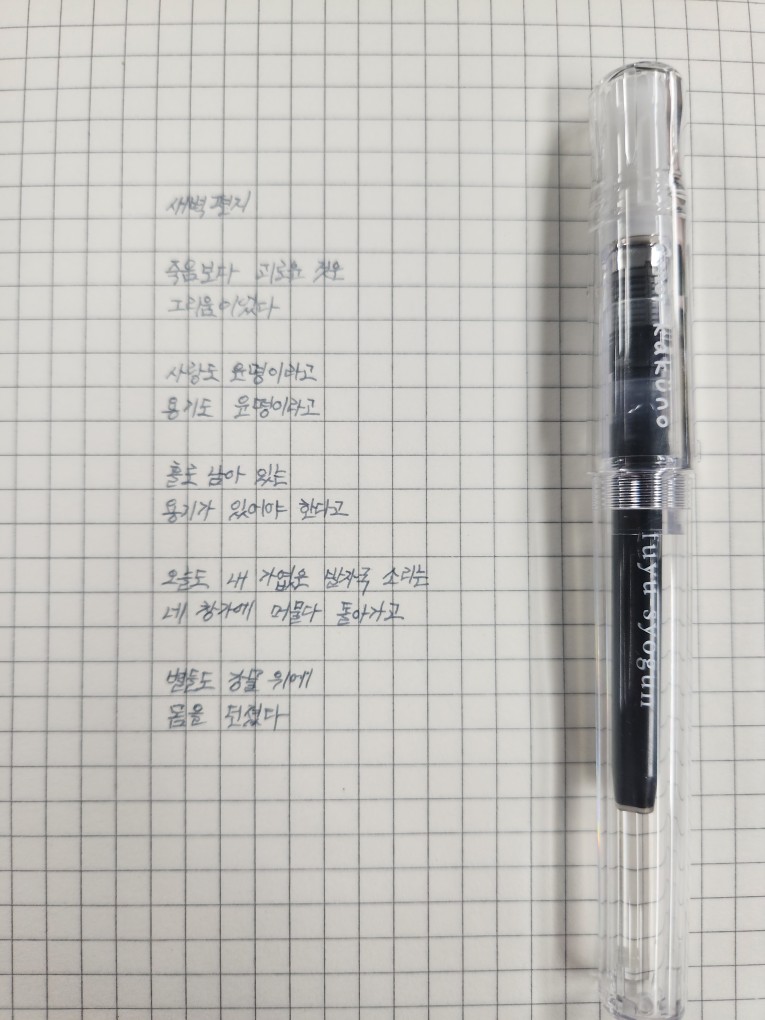 새벽편지
죽음보다 괴로운 것은
그리움이었다
사랑도 운명이라고
용기도 운명이라고
홀로 남아 있는
용기가 있어야 한다고
오늘도 내 가엾은 발자국 소리는
네 창가에 머물다 돌아가고
별들도 강물 위에
몸을 던졌다
kakuno
fuyu syogun